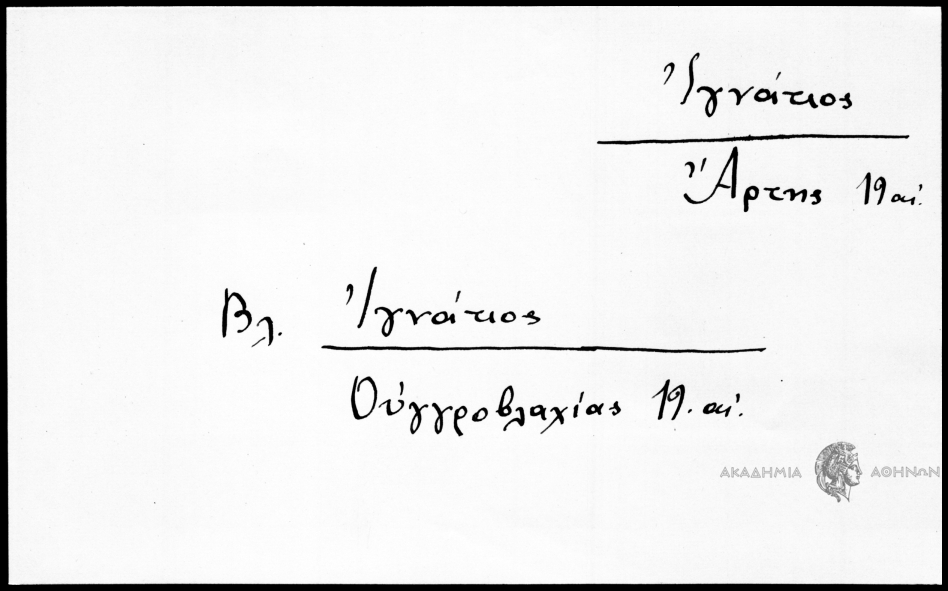 Ἰγνάτιος
Ἄρτης 19 αἰ.
Βλ. Ἰγνάτιος
Οὐγγροβλαχίας 19. αἰ.
ΑΚΑΔΗΜΙΑ ΑΘΗΝΩΝ